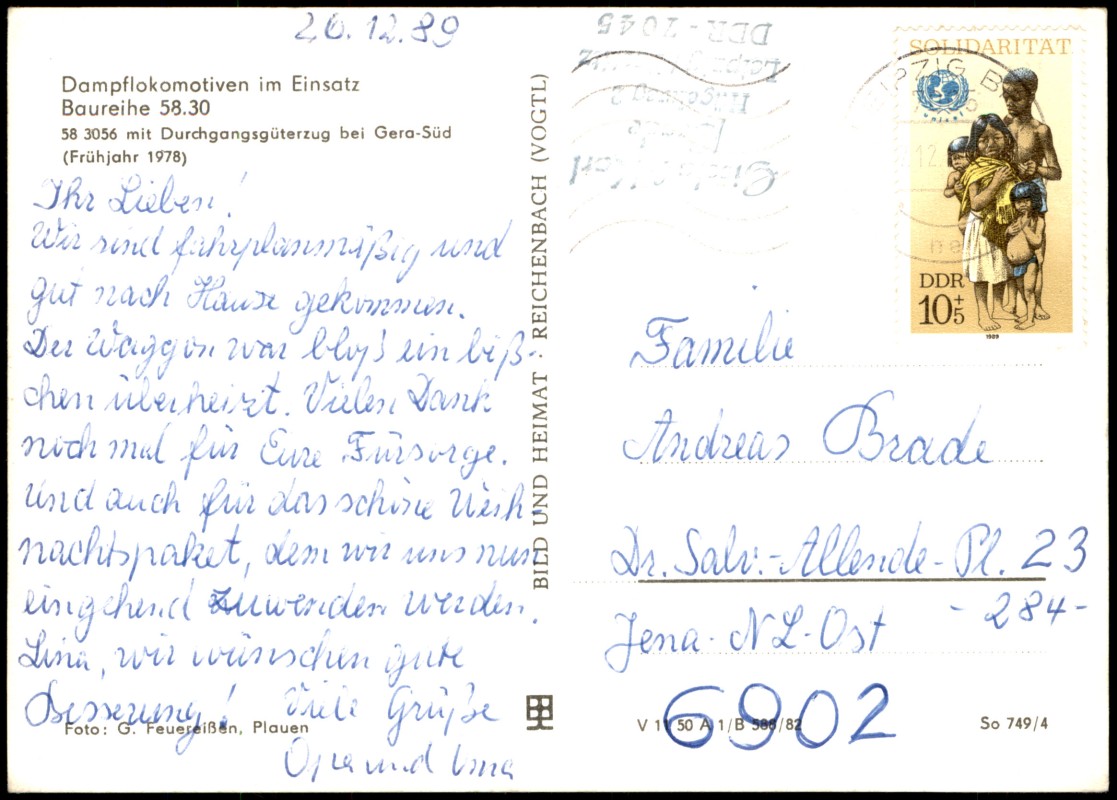 26.12.89
Dampflokomotiven im Einsatz
Baureihe 58.30
58 3056 mit Durchgangsgüterzug bei Gera-Süd
(Frühjahr 1978)
Ihr Lieben!
Wir sind fahrplanmäßig und
gut nach Hause gekommen.
Der Waggon war bloß ein biß-
chen überheizt. Vielen Dank
noch mal für Eure Fürsorge.
Und auch für das schöne Weih-
nachtspaket, dem wir uns nun
eingehend zuwenden werden.
Lina, wir wünschen gute
Besserung! Viele Grüße
Opa und Oma
Foto: G. Feuereißen, Plauen
BILD UND HEIMAT · REICHENBACH (VOGTL)
DDR - 7045
Leipzig
SOLIDARITÄT
LEIPZIG B
DDR
10+5
1989
Familie
Andreas Brade
Dr. Salv.-Allende-Pl. 23
- 284 -
Jena-NL-Ost
6902
V 11 50 A 1/B 588/82
So 749/4